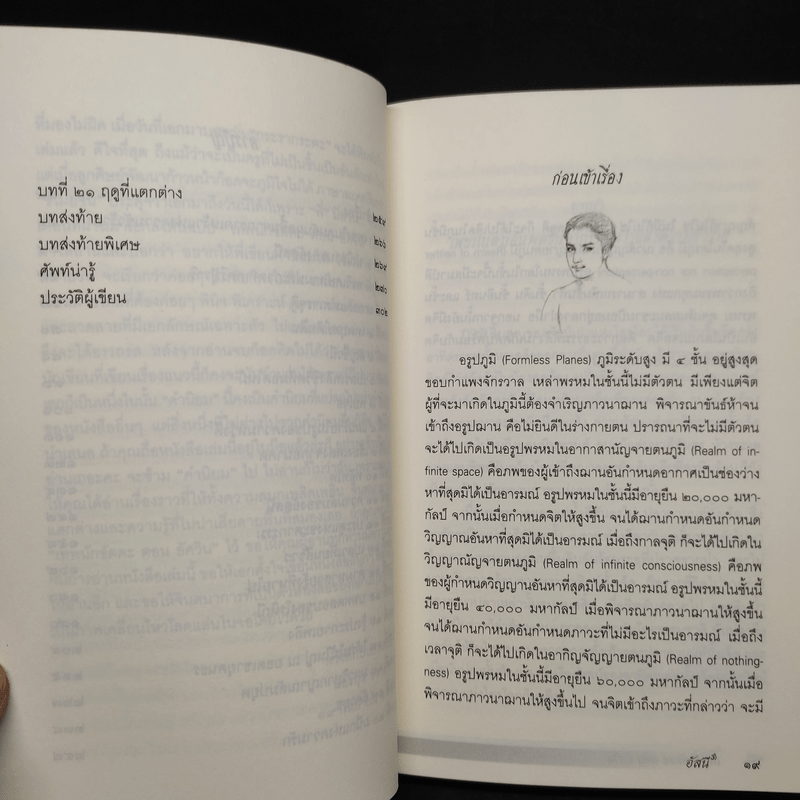 บทที่ ๒๑ ฤดูที่แตกต่าง ๒๕๙
บทส่งท้าย ๒๖๖
บทส่งท้ายพิเศษ ๒๖๙
ศัพท์น่ารู้ ๒๗๐
ประวัติผู้เขียน ๓๐๒
ก่อนเข้าเรื่อง
อรูปภูมิ (Formless Planes) ภูมิระดับสูง มี ๔ ชั้น อยู่สูงสุด
ขอบกำแพงจักรวาล เหล่าพรหมในชั้นนี้ไม่มีตัวตน มีเพียงแต่จิต
ผู้ที่จะมาเกิดในภูมินี้ต้องจำเริญภาวนาฌาน พิจารณาขันธ์ห้าจน
เข้าถึงอรูปฌาน คือไม่ยินดีในร่างกายตน ปรารถนาที่จะไม่มีตัวตน
จะได้ไปเกิดเป็นอรูปพรหมในอากาสานัญจายตนภูมิ (Realm of in-
finite space) คือภพของผู้เข้าถึงฌานอันกำหนดอากาศเป็นช่องว่าง
หาที่สุดมิได้เป็นอารมณ์ อรูปพรหมในชั้นนี้มีอายุยืน ๒๐,๐๐๐ มหา-
กัลป์ จากนั้นเมื่อกำหนดจิตให้สูงขึ้น จนได้ฌานกำหนดอันกำหนด
วิญญาณอันหาที่สุดมิได้เป็นอารมณ์ เมื่อถึงกาลจุติ ก็จะได้ไปเกิดใน
วิญญาณัญจายตนภูมิ (Realm of infinite consciousness) คือภพ
ของผู้กำหนดวิญญานอันหาที่สุดมิได้เป็นอารมณ์ อรูปพรหมในชั้นนี้
มีอายุยืน ๔๐,๐๐๐ มหากัลป์ เมื่อพิจารณาภาวนาฌานให้สูงขึ้น
จนได้ฌานกำหนดอันกำหนดภาวะที่ไม่มีอะไรเป็นอารมณ์ เมื่อถึง
เวลาจุติ ก็จะได้ไปเกิดในอากิญจัญญายตนภูมิ (Realm of nothing-
ness) อรูปพรหมในชั้นนี้มีอายุยืน ๖๐,๐๐๐ มหากัลป์ จากนั้นเมื่อ
พิจารณาภาวนาฌานให้สูงขึ้นไป จนจิตเข้าถึงภาวะที่กล่าวว่า จะมี
อัสนี ๑๙